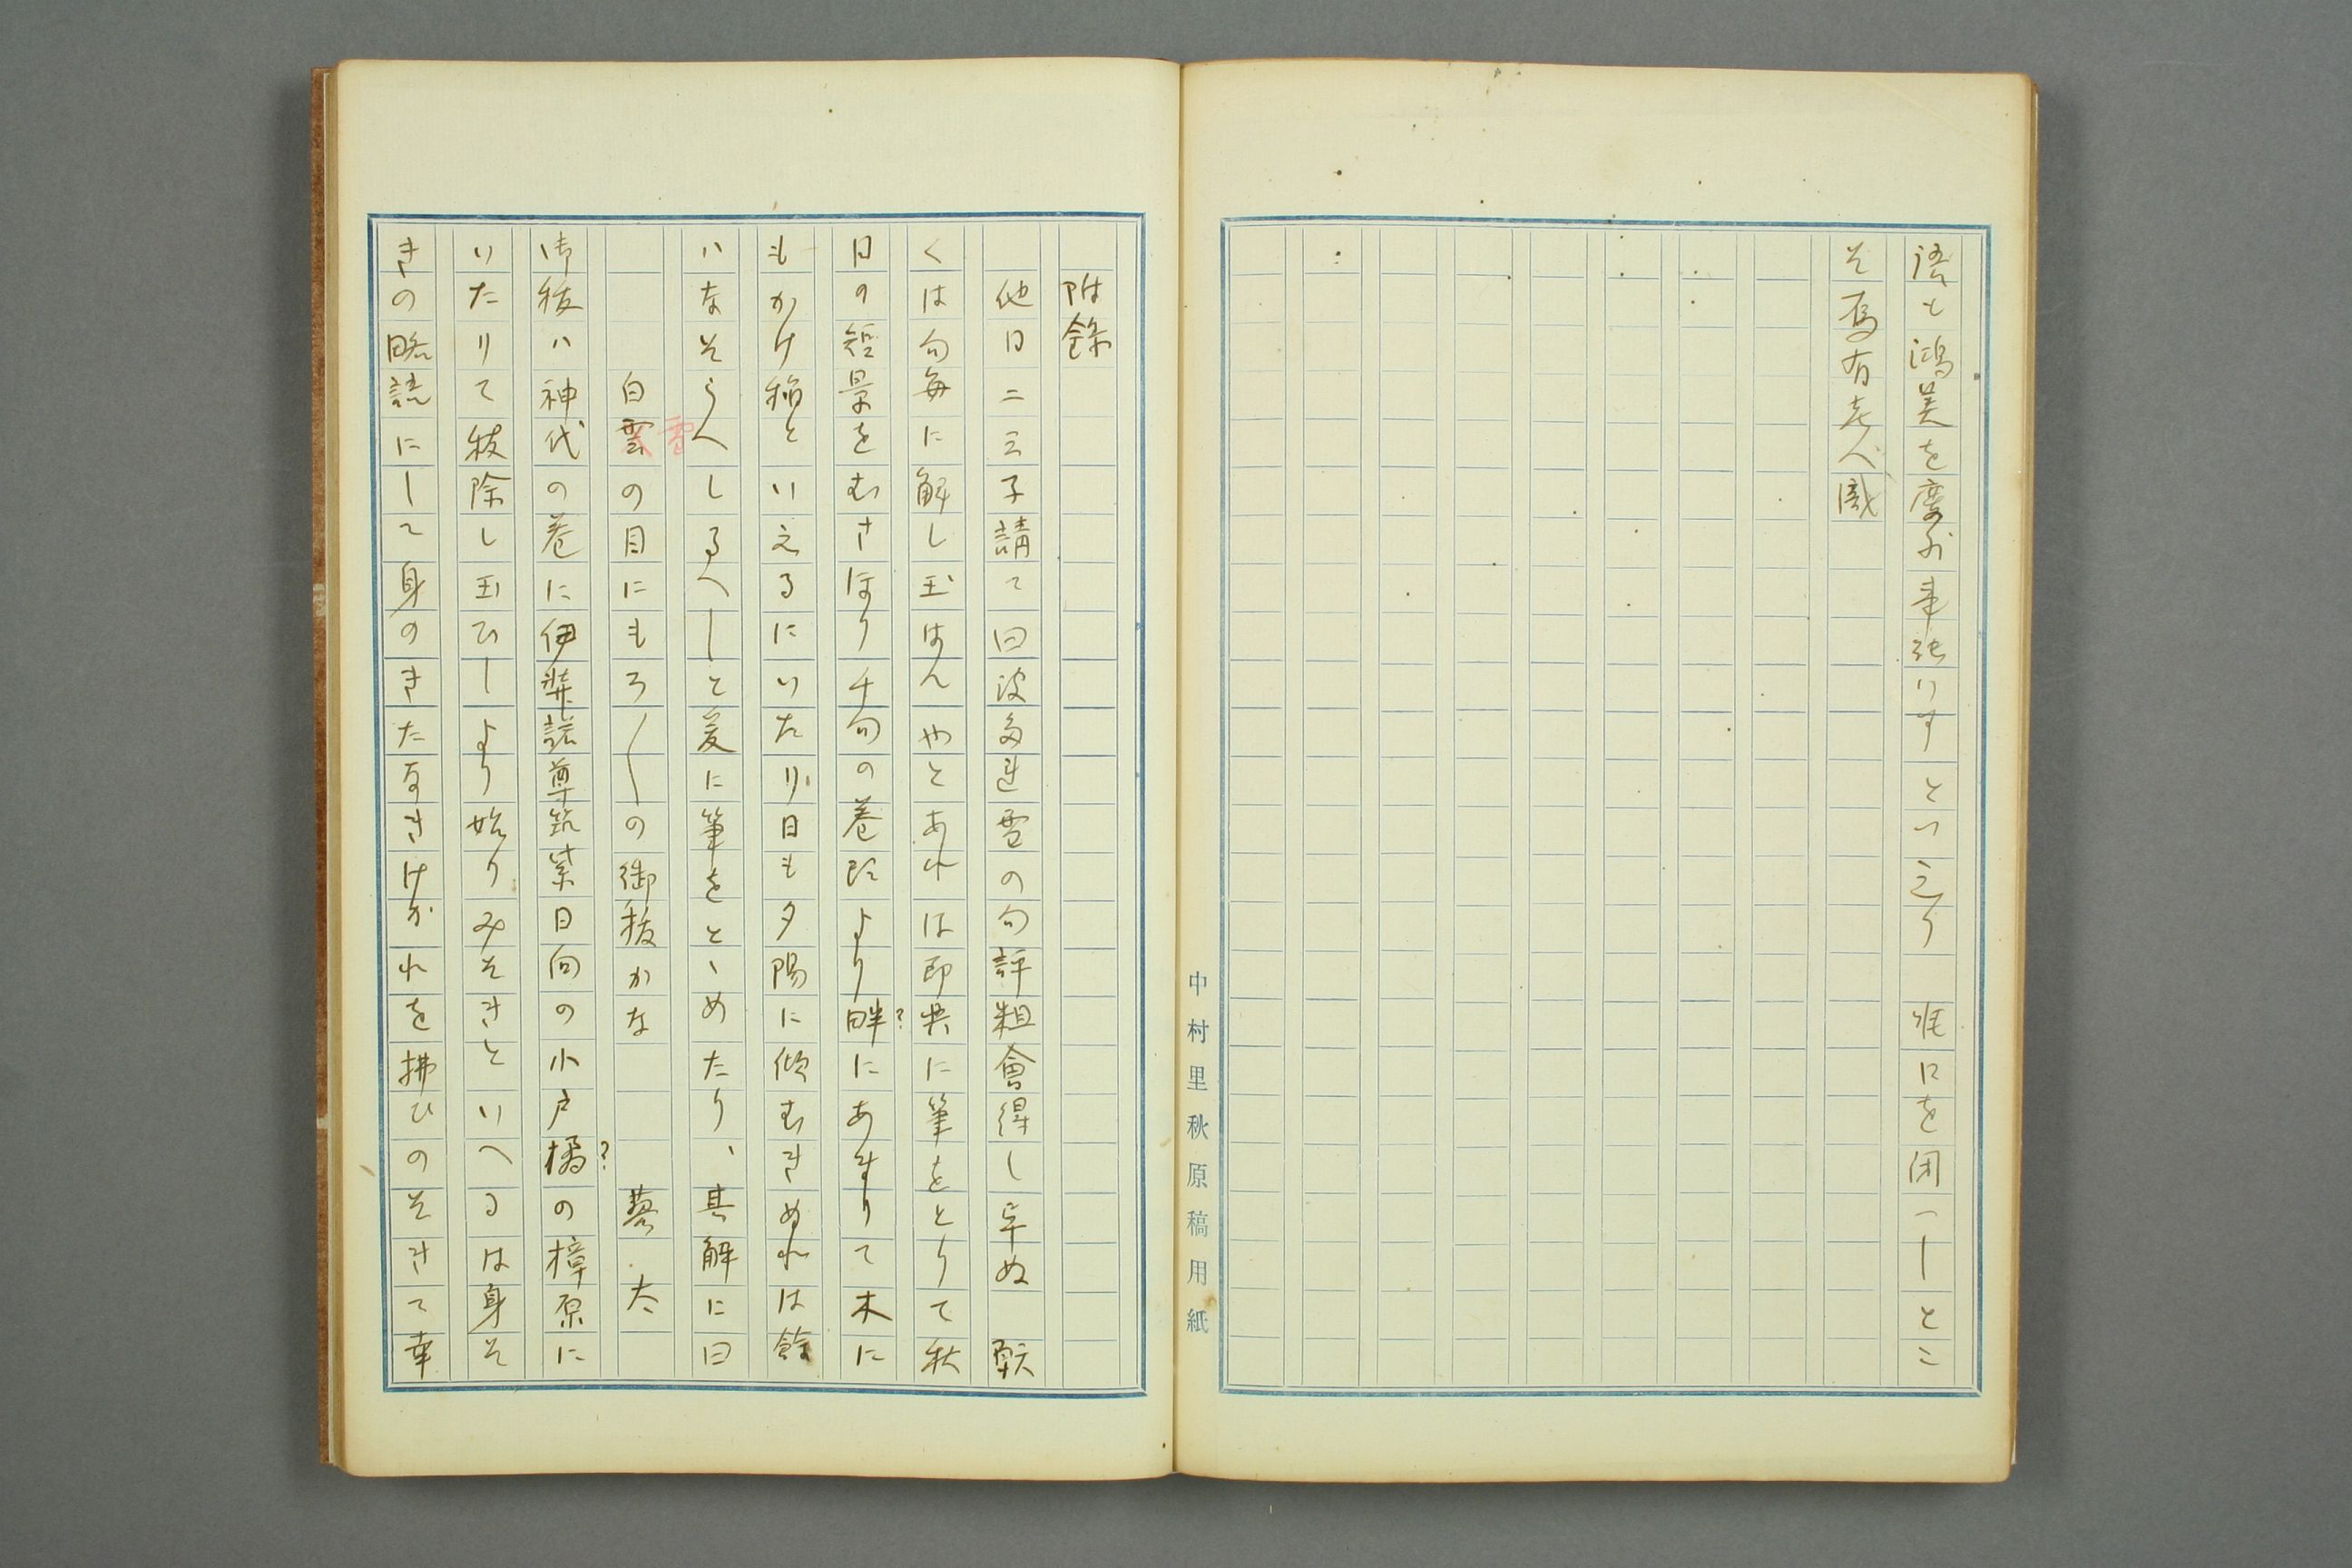 語も鴻美を慶外事強りすといえり 唯口を閉へしとこ
そ烏有老人識
中村里秋原稿用紙
附錄
他日二三子請て曰波多連雪の句評粗會得し卒ぬ 願
くは句毎に解し玉はんやとあれは即坐に筆をとりて秋
日の短景をむさほり千句の巻頭より畔?にあまりて木に
もかけ稲といえるにいたり日も夕陽に傾むきぬれは餘
ハなそらへしるへしと爰に筆をとゝめたり、其解に曰
白雲の目にもろ〳〵の御祓かな 蓼太
雪
御祓ハ神代の巻に伊弉諾尊筑紫日向の小戸橘?の檍原に
いたりて祓除し玉ひしより始りみそきといへるは身そ
きの略語にして身のきたなきけかれを拂ひのそきて幸